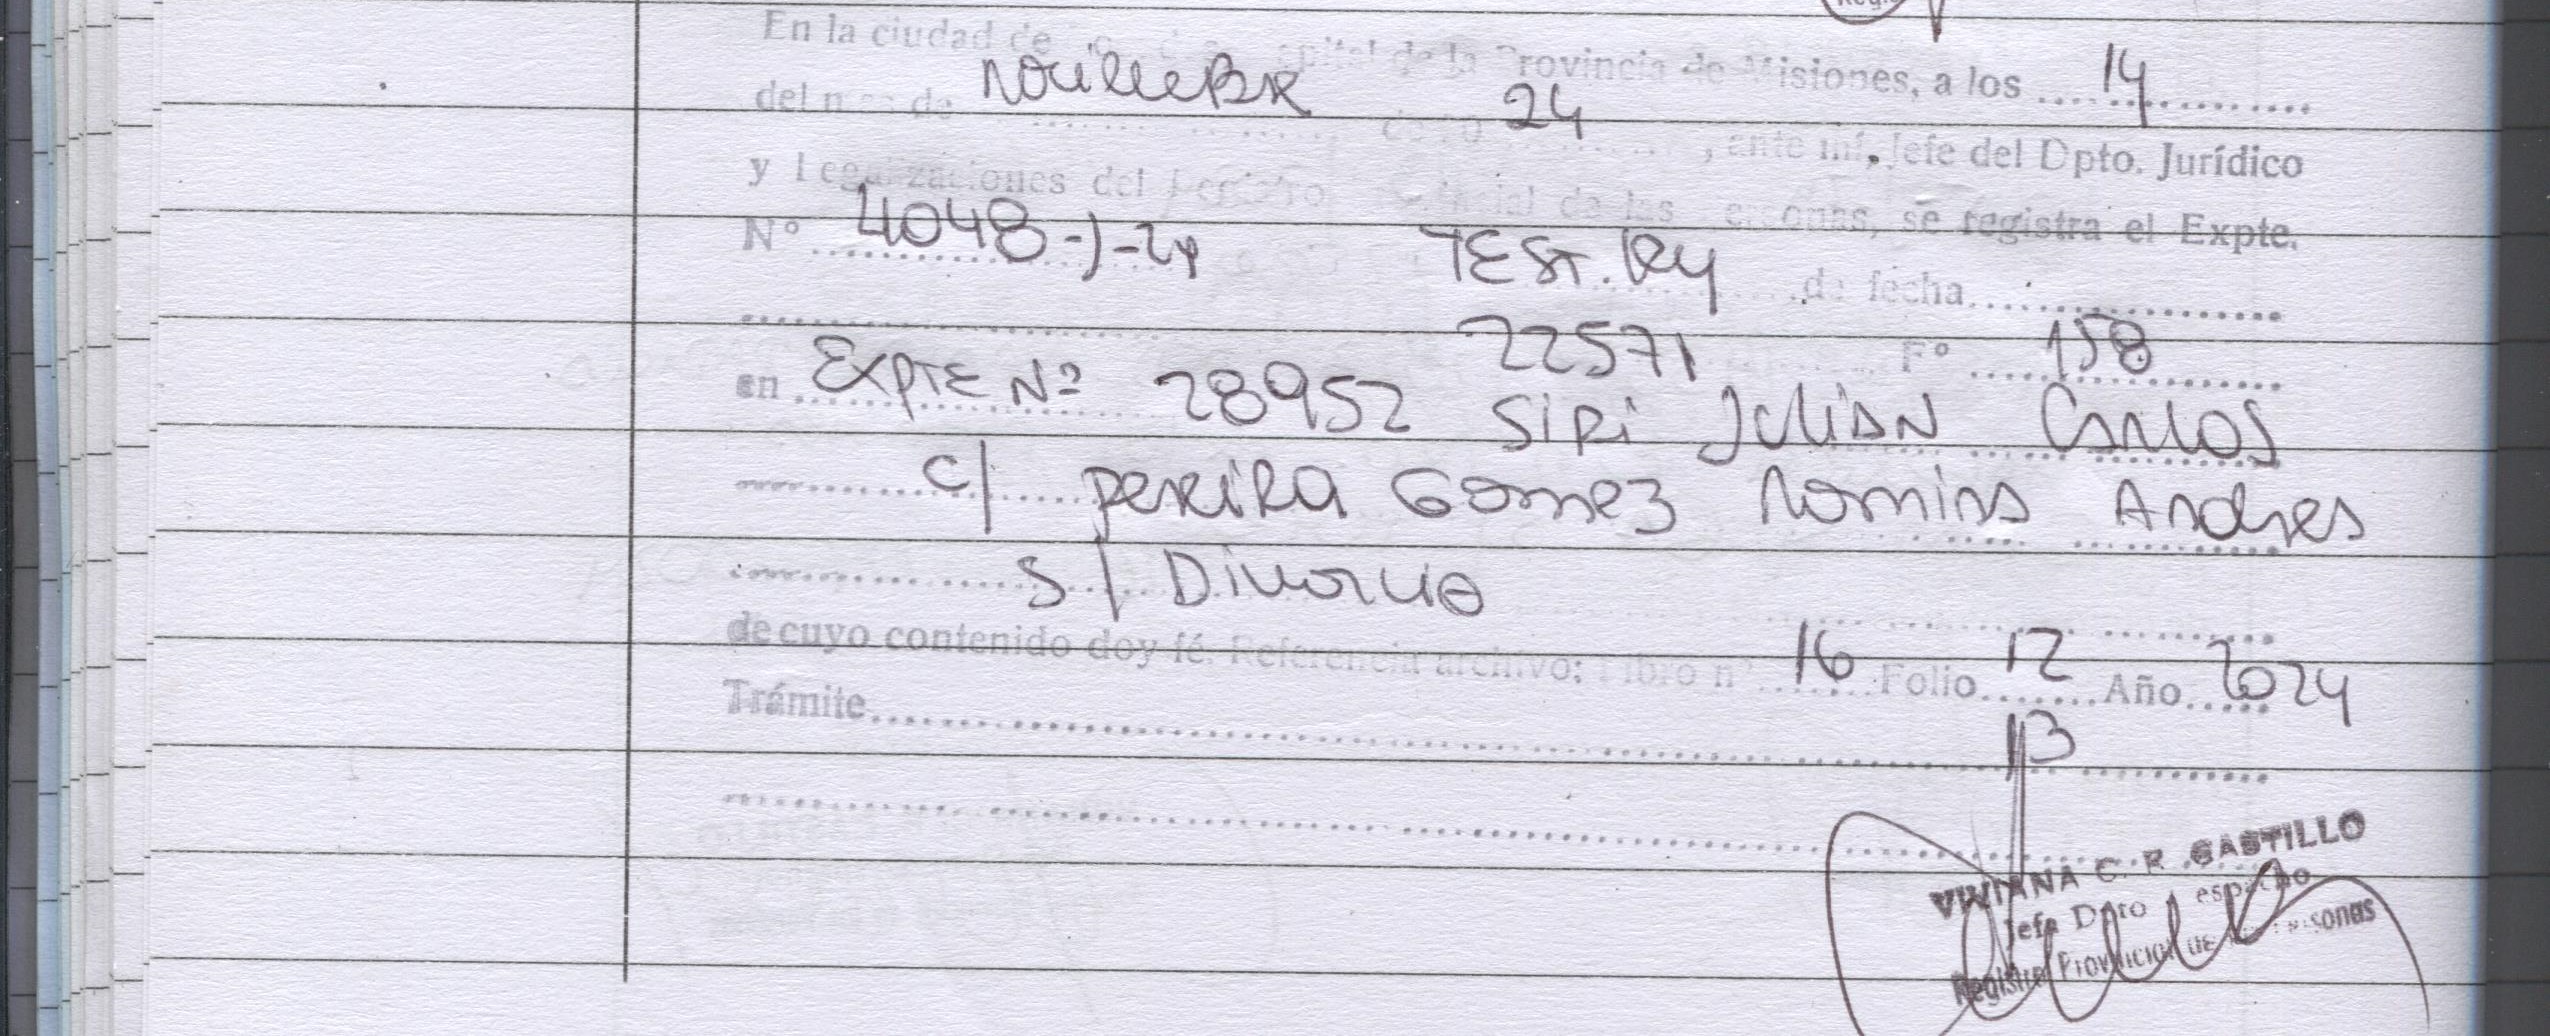 En la ciudad de Capital de la Provincia de Misiones, a los 14
del mes de NOVIEMBR de 20 24, ante mí, Jefe del Dpto. Jurídico
y Legalizaciones del Registro Provincial de las Personas, se registra el Expte.
N° 4048-J-24 TEST. de fecha
22571 F° 158
en EXPTE Nº 28952 SIRI JULIAN CARLOS
C/ PEREIRA GOMEZ ROMINA ANDREA
S/ DIVORCIO
de cuyo contenido doy fé. Referencia archivo: Libro nº 16 Folio 12 Año 2024
Trámite
13
VIVIANA C. R. CASTILLO
Jefe Dpto Despacho
Registro Provincial de las Personas